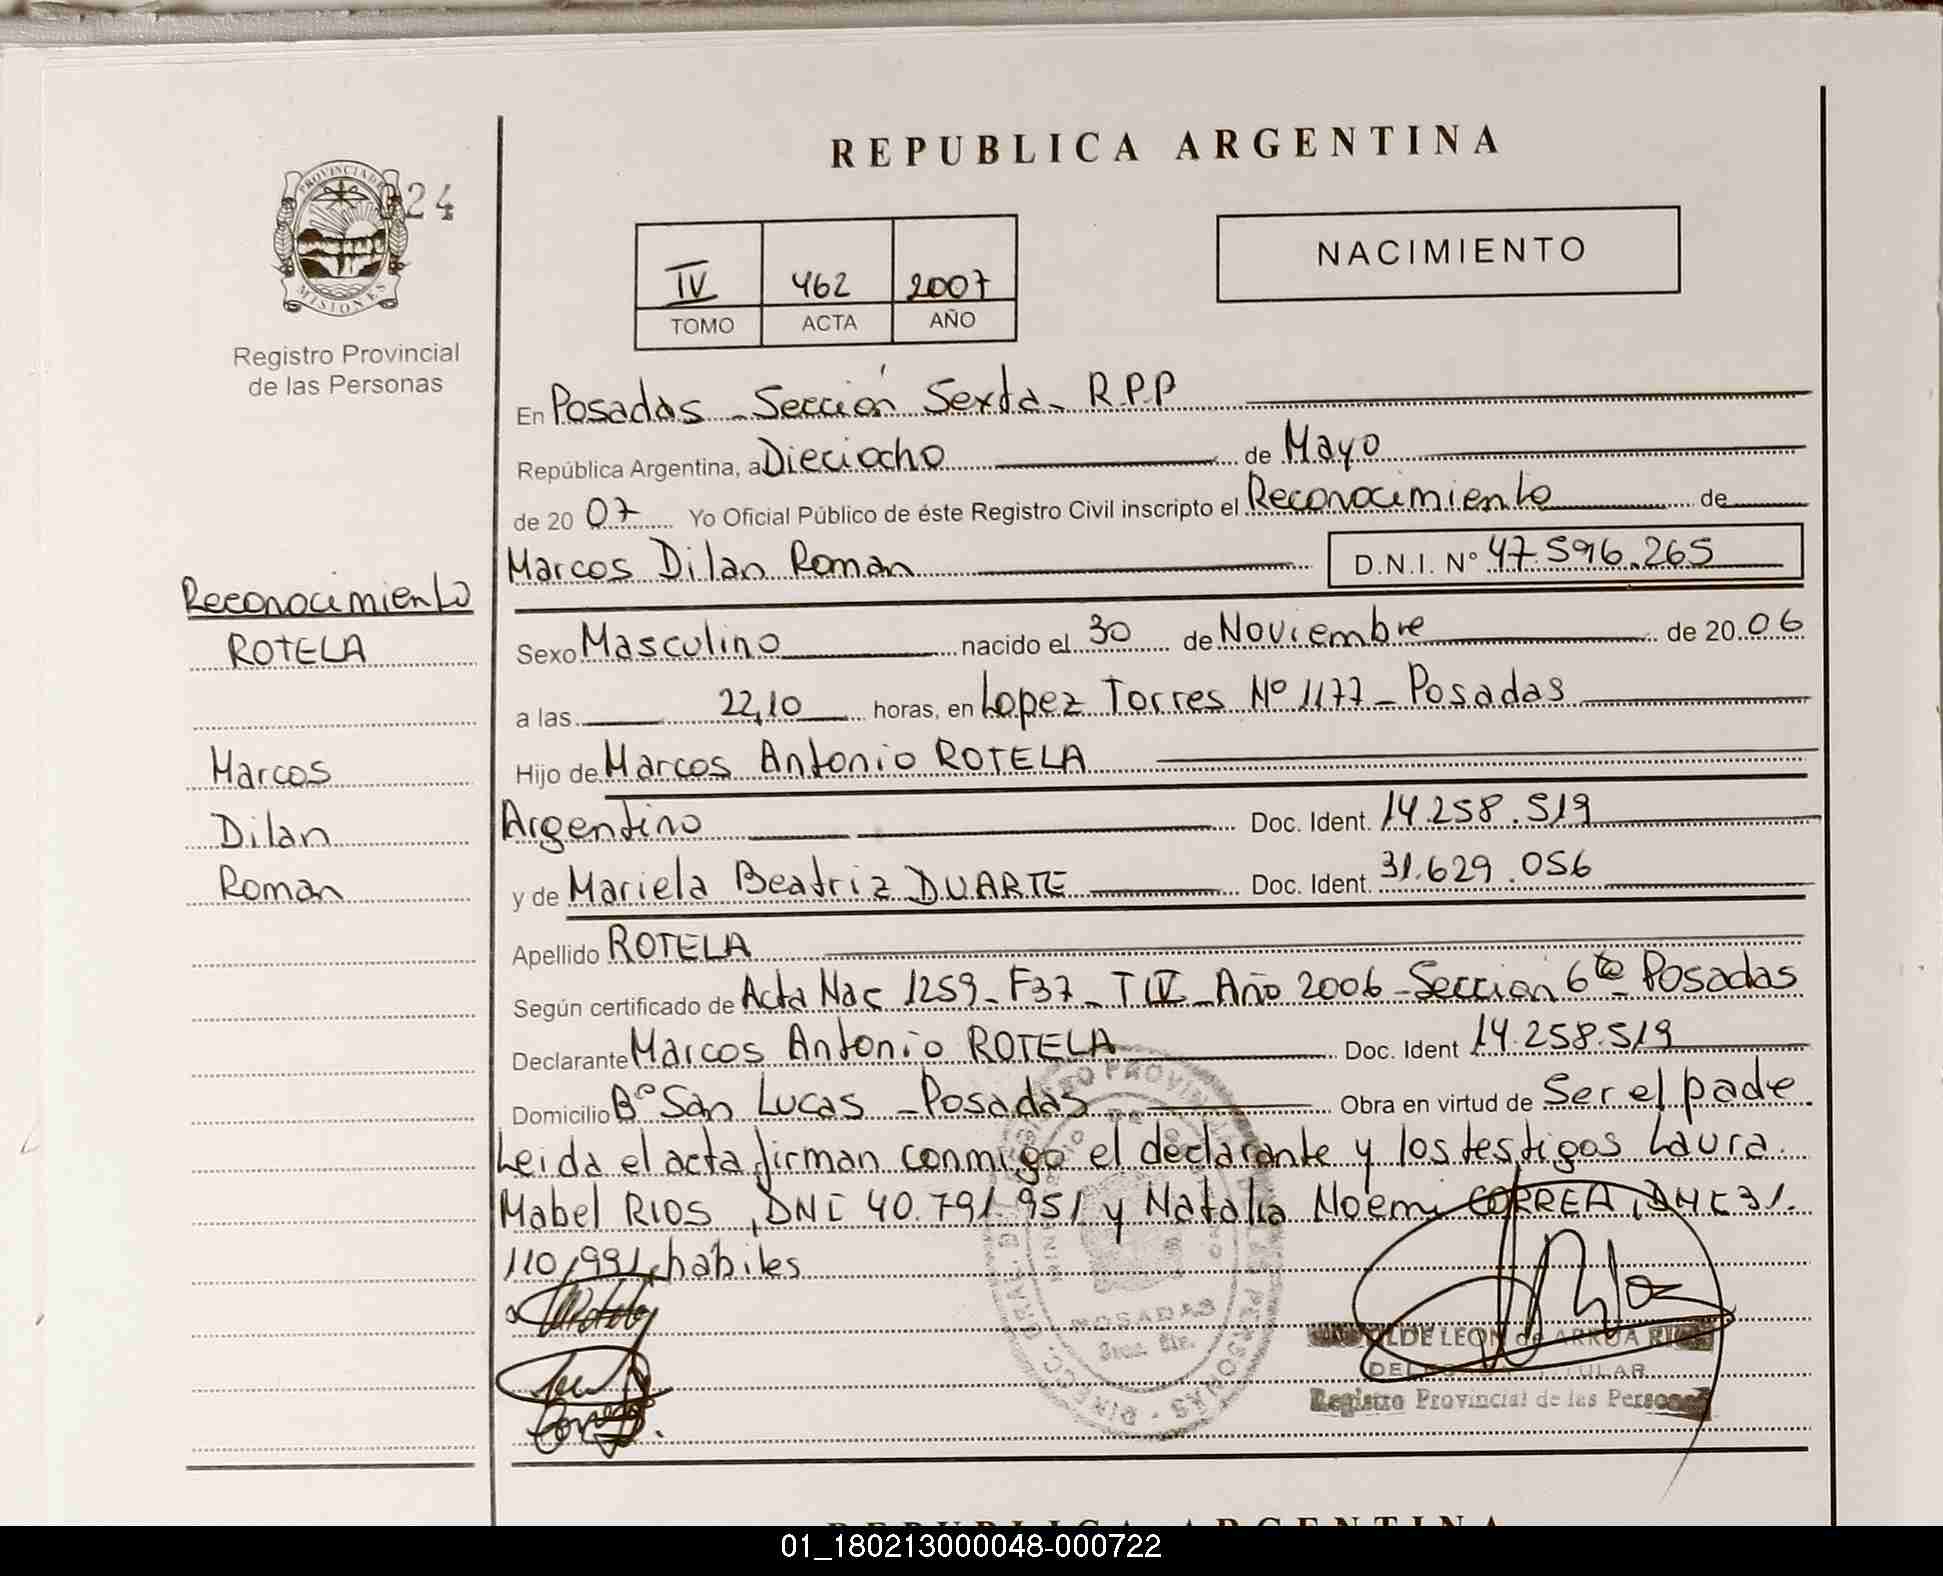 REPUBLICA ARGENTINA
PROVINCIA DE
MISIONES
24
Registro Provincial
de las Personas
IV 462 2007
TOMO ACTA AÑO
NACIMIENTO
En Posadas - Sección Sexta - R.P.P
República Argentina, a Dieciocho de Mayo
de 20 07 Yo Oficial Público de éste Registro Civil inscripto el Reconocimiento de
Marcos Dilan Roman D.N.I. Nº 47.596.265
Reconocimiento
ROTELA
Marcos
Dilan
Roman
Sexo Masculino nacido el 30 de Noviembre de 20 06
a las 22,10 horas, en Lopez Torres Nº 1177 - Posadas
Hijo de Marcos Antonio ROTELA
Argentino Doc. Ident. 14.258.519
y de Mariela Beatriz DUARTE Doc. Ident. 31.629.056
Apellido ROTELA
Según certificado de Acta Nac 1259 - F37 - T IV - Año 2006 - Sección 6ta Posadas
Declarante Marcos Antonio ROTELA Doc. Ident 14.258.519
Domicilio Bº San Lucas - Posadas Obra en virtud de Ser el padre
Leida el acta firman conmigo el declarante y los testigos Laura
Mabel RIOS, DNI 40.791.951 y Natalia Noemi CORREA, DNI 31.
110.991, habiles
POSADAS
LEON de ARRUA
Registro Provincial de las Personas
REPUBLICA ARGENTINA
01_180213000048-000722